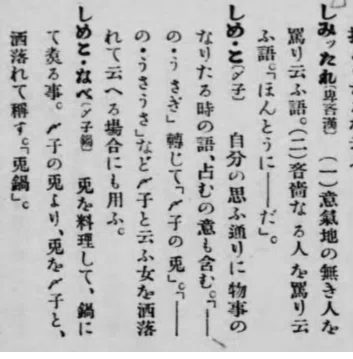 しみッたれ(卑吝漢) (一)意氣地の無き人を
罵り云ふ語。(二)吝嗇なる人を罵り云
ふ語。「ほんとうに――だ」。
しめ・と(〆子) 自分の思ふ通りに物事の
なりたる時の語、占むの意も含む。「――
の・うさぎ」轉じて「〆子の兎」。「――
の・うさうさ」など〆子と云ふ女を洒落
れて云へる場合にも用ふ。
しめと・なべ(〆子鍋) 兎を料理して、鍋に
て煑る事。〆子の兎より、兎を〆子と、
洒落れて稱す。「兎鍋」。